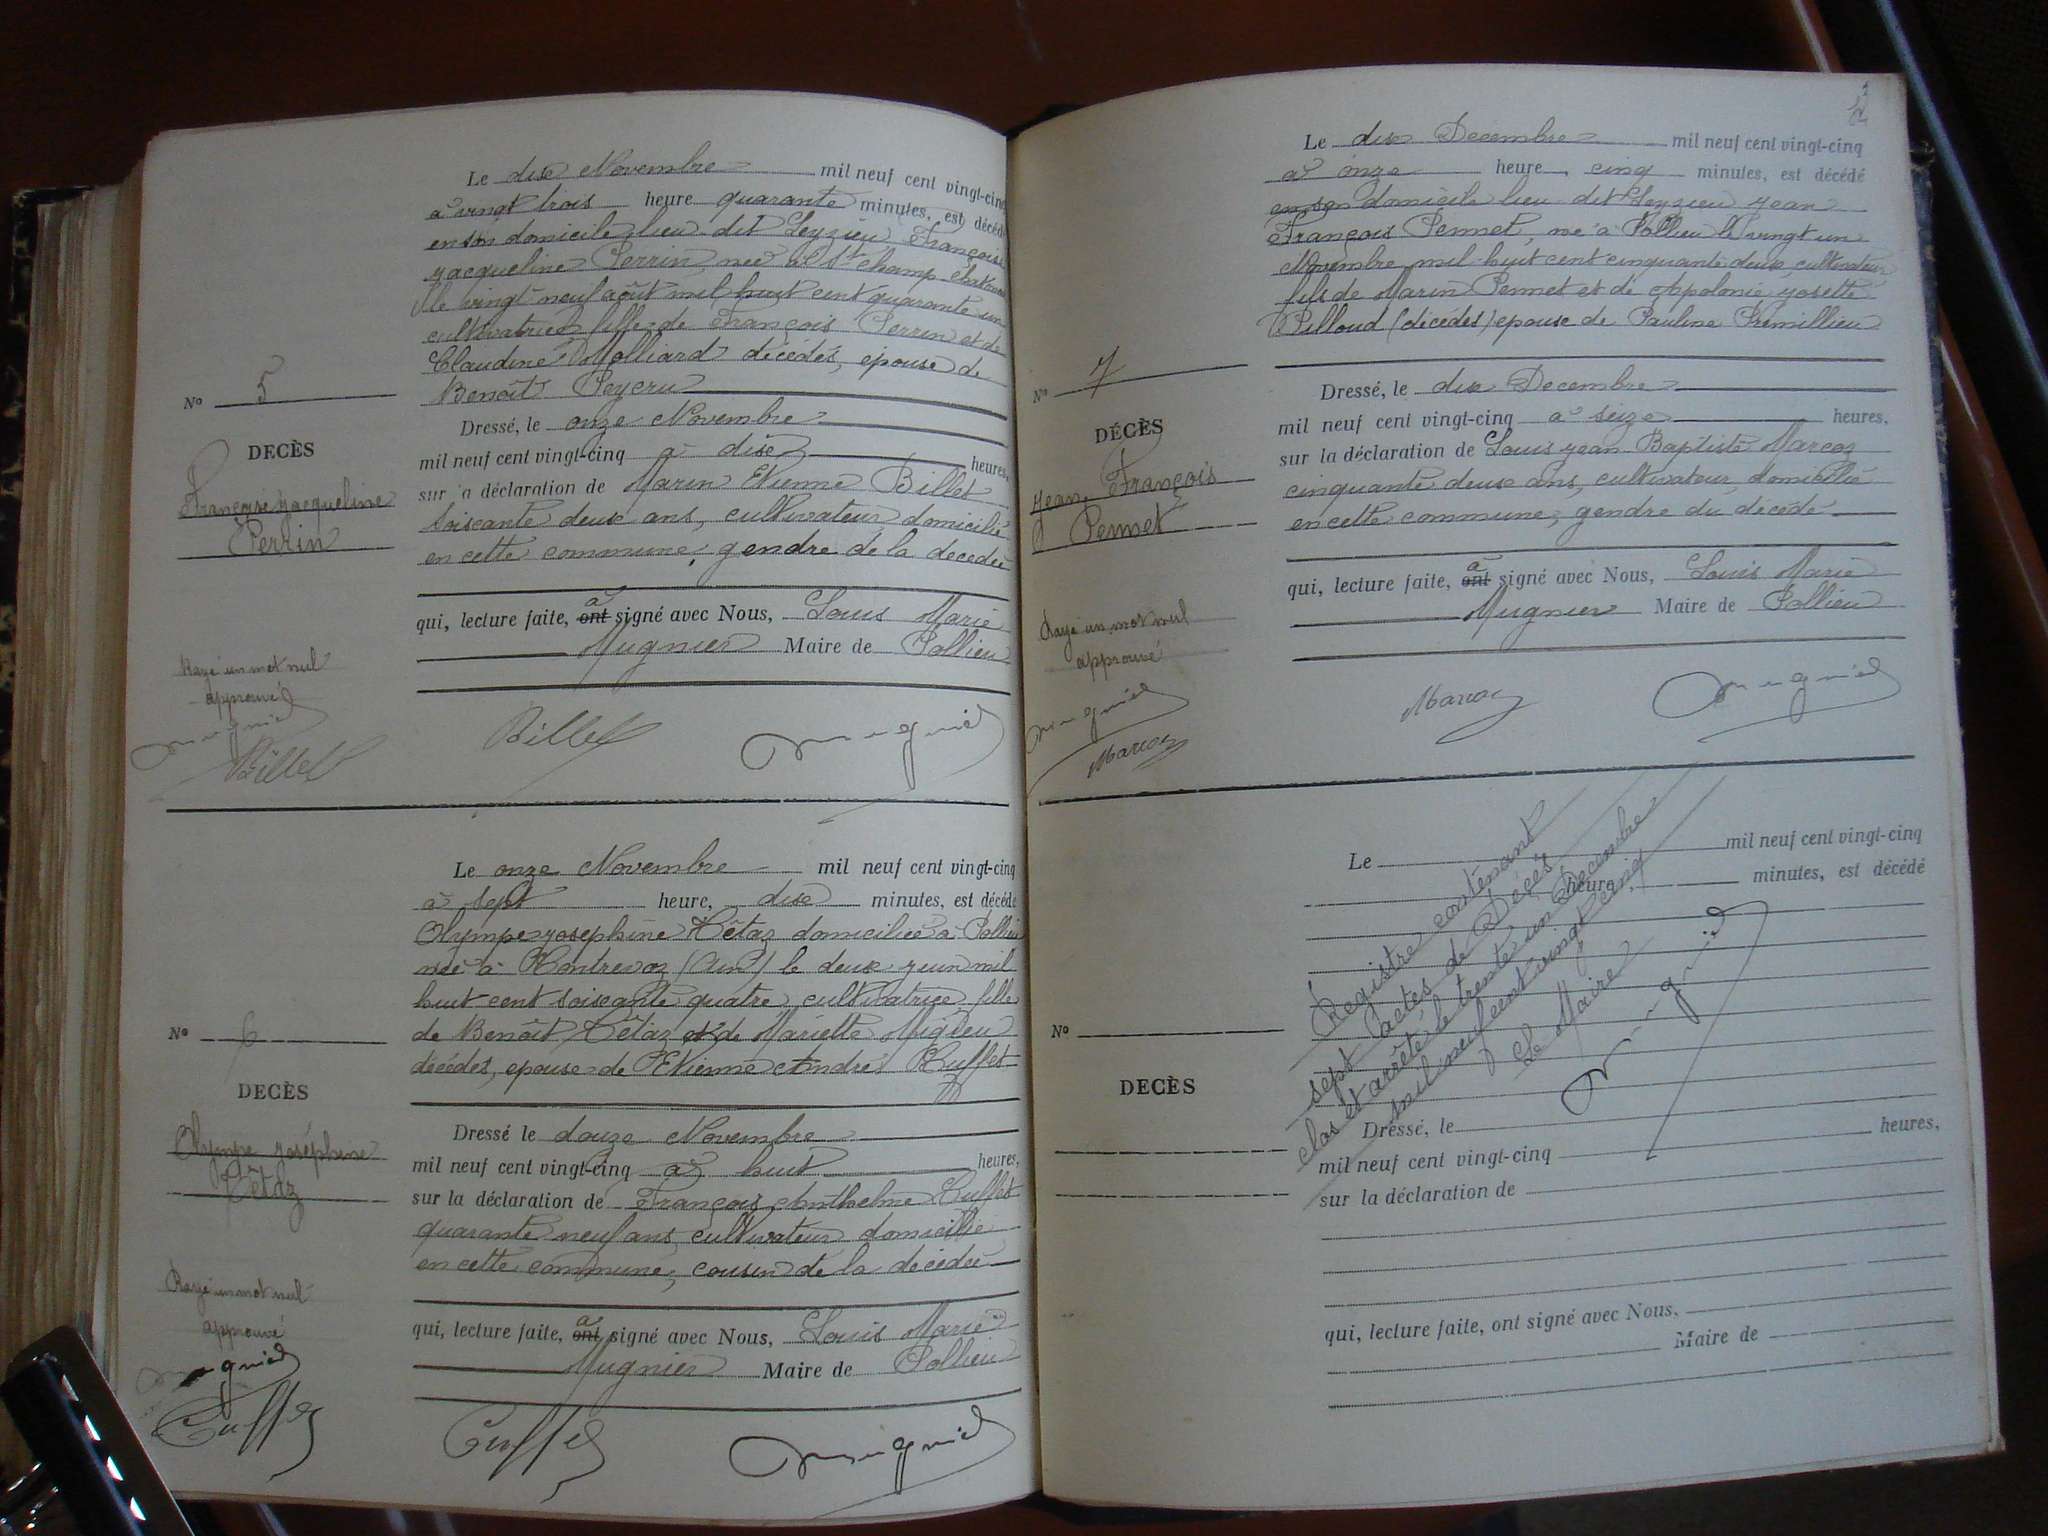 Le dix Novembre mil neuf cent vingt-cinq
à vingt trois heure quarante minutes, est décédé
en son domicile lieu dit Leyzieu Françoise
Jacqueline Perrin, née à St champ chatonod
le vingt neuf août mil huit cent quarante un
cultivatrice fille de François Perrin et de
Claudine Molliard décédés, épouse de
Benoît Peycru
No 5
Dressé, le onze Novembre
mil neuf cent vingt-cinq à dix heures,
DECÈS
sur la déclaration de Marin Etienne Billet
Françoise Jacqueline
Perrin
soixante deux ans, cultivateur domicilié
en cette commune, gendre de la décédée
qui, lecture faite, a ont signé avec Nous, Louis Marie
Mugnier Maire de Pollieu
Rayé un mot nul
approuvé
Mugnier
Billet
Billet Mugnier
Le onze Novembre mil neuf cent vingt-cinq
à sept heure, dix minutes, est décédé
Olympe Joséphine Tétaz domiciliée à Pollieu
née à Contrevoz (Ain) le deux juin mil
huit cent soixante quatre, cultivatrice fille
de Benoît Tétaz et de Mariette Migieu
décédés, épouse de Etienne André Cuffet
No 6
DECÈS
Olympe Joséphine
Tétaz
Dressé le douze Novembre
mil neuf cent vingt-cinq à huit heures,
sur la déclaration de François Anthelme Cuffet
quarante neuf ans, cultivateur domicilié
en cette commune, cousin de la décédée
qui, lecture faite, a ont signé avec Nous, Louis Marie
Mugnier Maire de Pollieu
Rayé un mot nul
approuvé
Mugnier
Cuffet
Cuffet Mugnier
Le dix Decembre mil neuf cent vingt-cinq
à onze heure, cinq minutes, est décédé
en son domicile lieu dit Leyzieu Jean
François Pernet, né à Pollieu le vingt un
Novembre mil huit cent cinquante deux, cultivateur
fils de Marin Pernet et de Appolonie Josette
Pilloud (décédés) epoux de Pauline Prémillieu
No 7
DÉCÈS
Jean François
Pernet
Dressé, le dix Decembre
mil neuf cent vingt-cinq à seize heures,
sur la déclaration de Louis Jean Baptiste Marcoz
cinquante deux ans, cultivateur, domicilié
en cette commune, gendre du décédé
qui, lecture faite, a ont signé avec Nous, Louis Marie
Mugnier Maire de Pollieu
Rayé un mot nul
approuvé
Mugnier
Marcoz
Marcoz Mugnier
Le mil neuf cent vingt-cinq
heure minutes, est décédé
Registre contenant
sept actes de Décès
clos et arrêté le trente un Decembre
mil neuf cent vingt cinq
Le Maire
Mugnier
No
DECÈS
Dressé, le
mil neuf cent vingt-cinq heures,
sur la déclaration de
qui, lecture faite, ont signé avec Nous,
Maire de